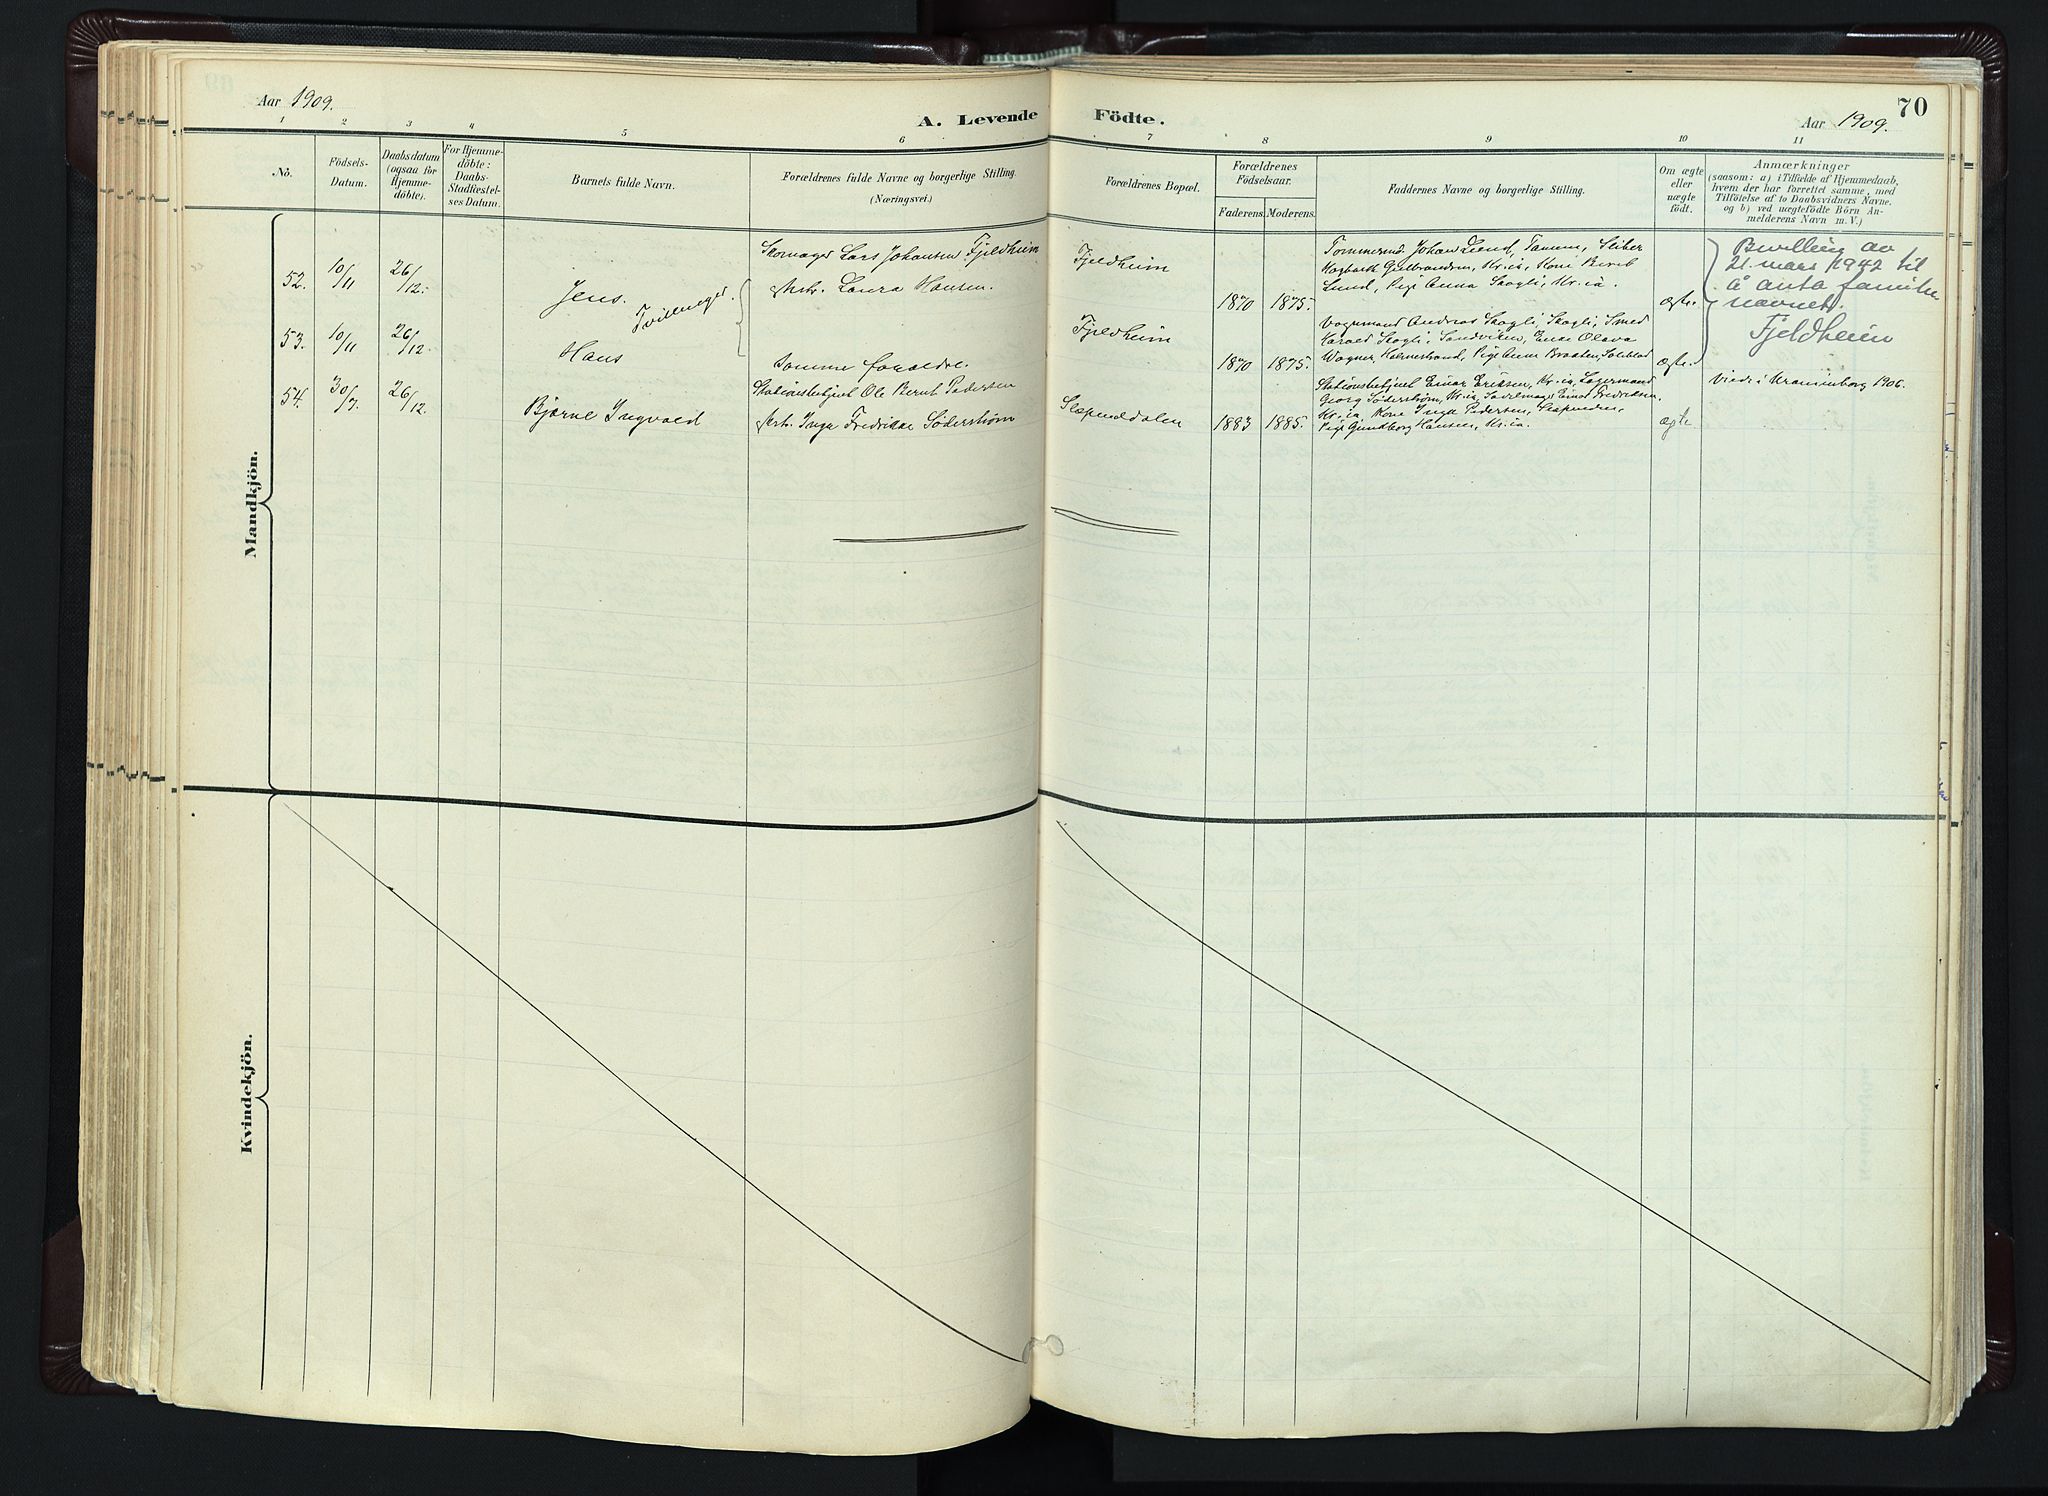 Aar 1909.
A. Levende Födte.
Aar 1909.
70
1 2 3 4 5 6 7 8 9 10 11
No.
Födsels-
Datum.
Daabsdatum
(ogsaa for
Hjemme-
döbte).
For Hjemme-
döbte:
Daabs-
Stadfæstel-
ses Datum.
Barnets fulde Navn.
Forældrenes fulde Navne og borgerlige Stilling.
(Næringsvei.)
Forældrenes Bopæl.
Forældrenes
Födselsaar.
Faderens. Moderens.
Faddernes Navne og borgerlige Stilling.
Om ægte
eller
uægte
födt.
Anmærkninger
(saasom: a) i Tilfælde af Hjemmedaab,
hvem der har forrettet samme, med
Tilföielse af to Daabsvidners Navne.
og b) ved uægtefödte Börn An-
melderens Navn m. V.)
Mandkjön.
52. 10/11 26/12. Jens. Tvillinger.
Skomager Lars Johansen Fjeldheim
Hstr. Laura Hansen.
Fjeldheim
1870 1875.
Tømmermd Johan Lund, Tanum, Sliber
Hagbarth Gulbrandsen, Kr.ia, Kone Berit
Lund, Pige Anna Skogli, Kr.ia.
ægte.
Bevilling av
21. mars 1942 til
å anta familie
navnet.
Fjeldheim
53. 10/11 26/12. Hans
samme forældre.
Fjeldheim
1870 1875.
Vognmand Andreas Skogli, Skogli, Smed
Harald Skogli, Sandviken, Enke Olava
Wagner, Holmestrand, Pige Anna Braaten,
ægte.
54. 30/7 26/12. Bjarne Ingvald
Stationsbetjent Ole Bernt Pedersen
Hstr. Inga Fredrikke Söderström
Slæpenddalen
1883 1885.
Stationsbetjent Einar Eriksen, Kr.ia, Lagermand
Georg Söderström, Kr.ia, Sadelmager Einar Fredriksen,
Kr.ia, Kone Inga Pedersen, Slæpenden,
Pige Gundborg Hansen, Kr.ia.
ægte
Viede i Kranienborg 1906.
Kvindekjön.